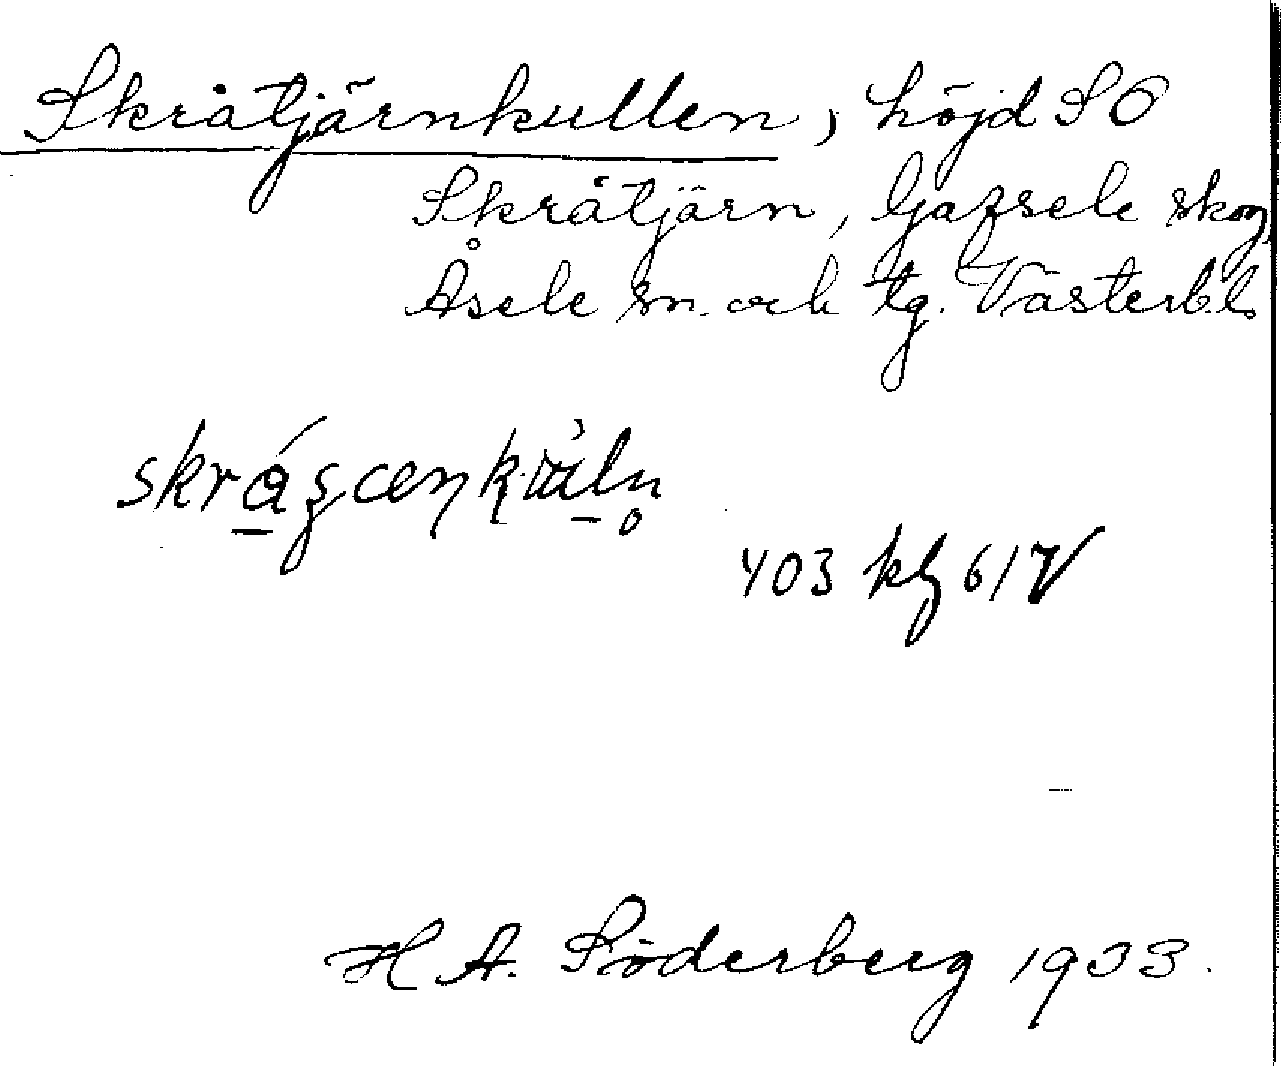 Skråtjärnkullen, höjd SO
Skråtjärn, Gafsele skog,
Åsele sn. och tg. Västerb.l.
403 kg 61 V
H A. Söderberg 1933.